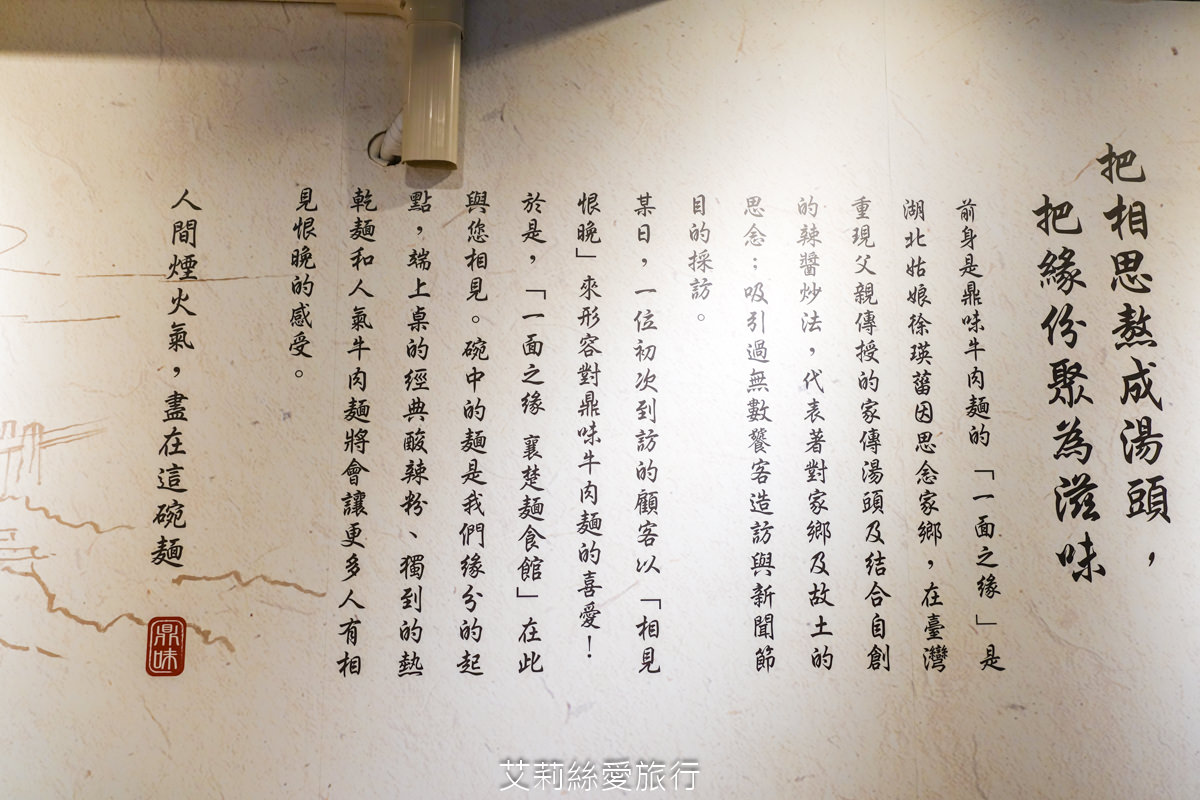 把相思熬成湯頭，
把緣份聚為滋味
前身是鼎味牛肉麵的「一面之緣」是
湖北姑娘徐瑛蕾因思念家鄉，在臺灣
重現父親傳授的家傳湯頭及結合自創
的辣醬炒法，代表著對家鄉及故土的
思念：吸引過無數饕客造訪與新聞節
目的採訪。
某日，一位初次到訪的顧客以「相見
恨晚」來形容對鼎味牛肉麵的喜愛！
於是，「一面之緣 襄楚麵食館」在此
與您相見。碗中的麵是我們緣分的起
點，端上桌的經典酸辣粉、獨到的熱
乾麵和人氣牛肉麵將會讓更多人有相
見恨晚的感受。
人間煙火氣，盡在這碗麵
鼎味
艾莉絲愛旅行